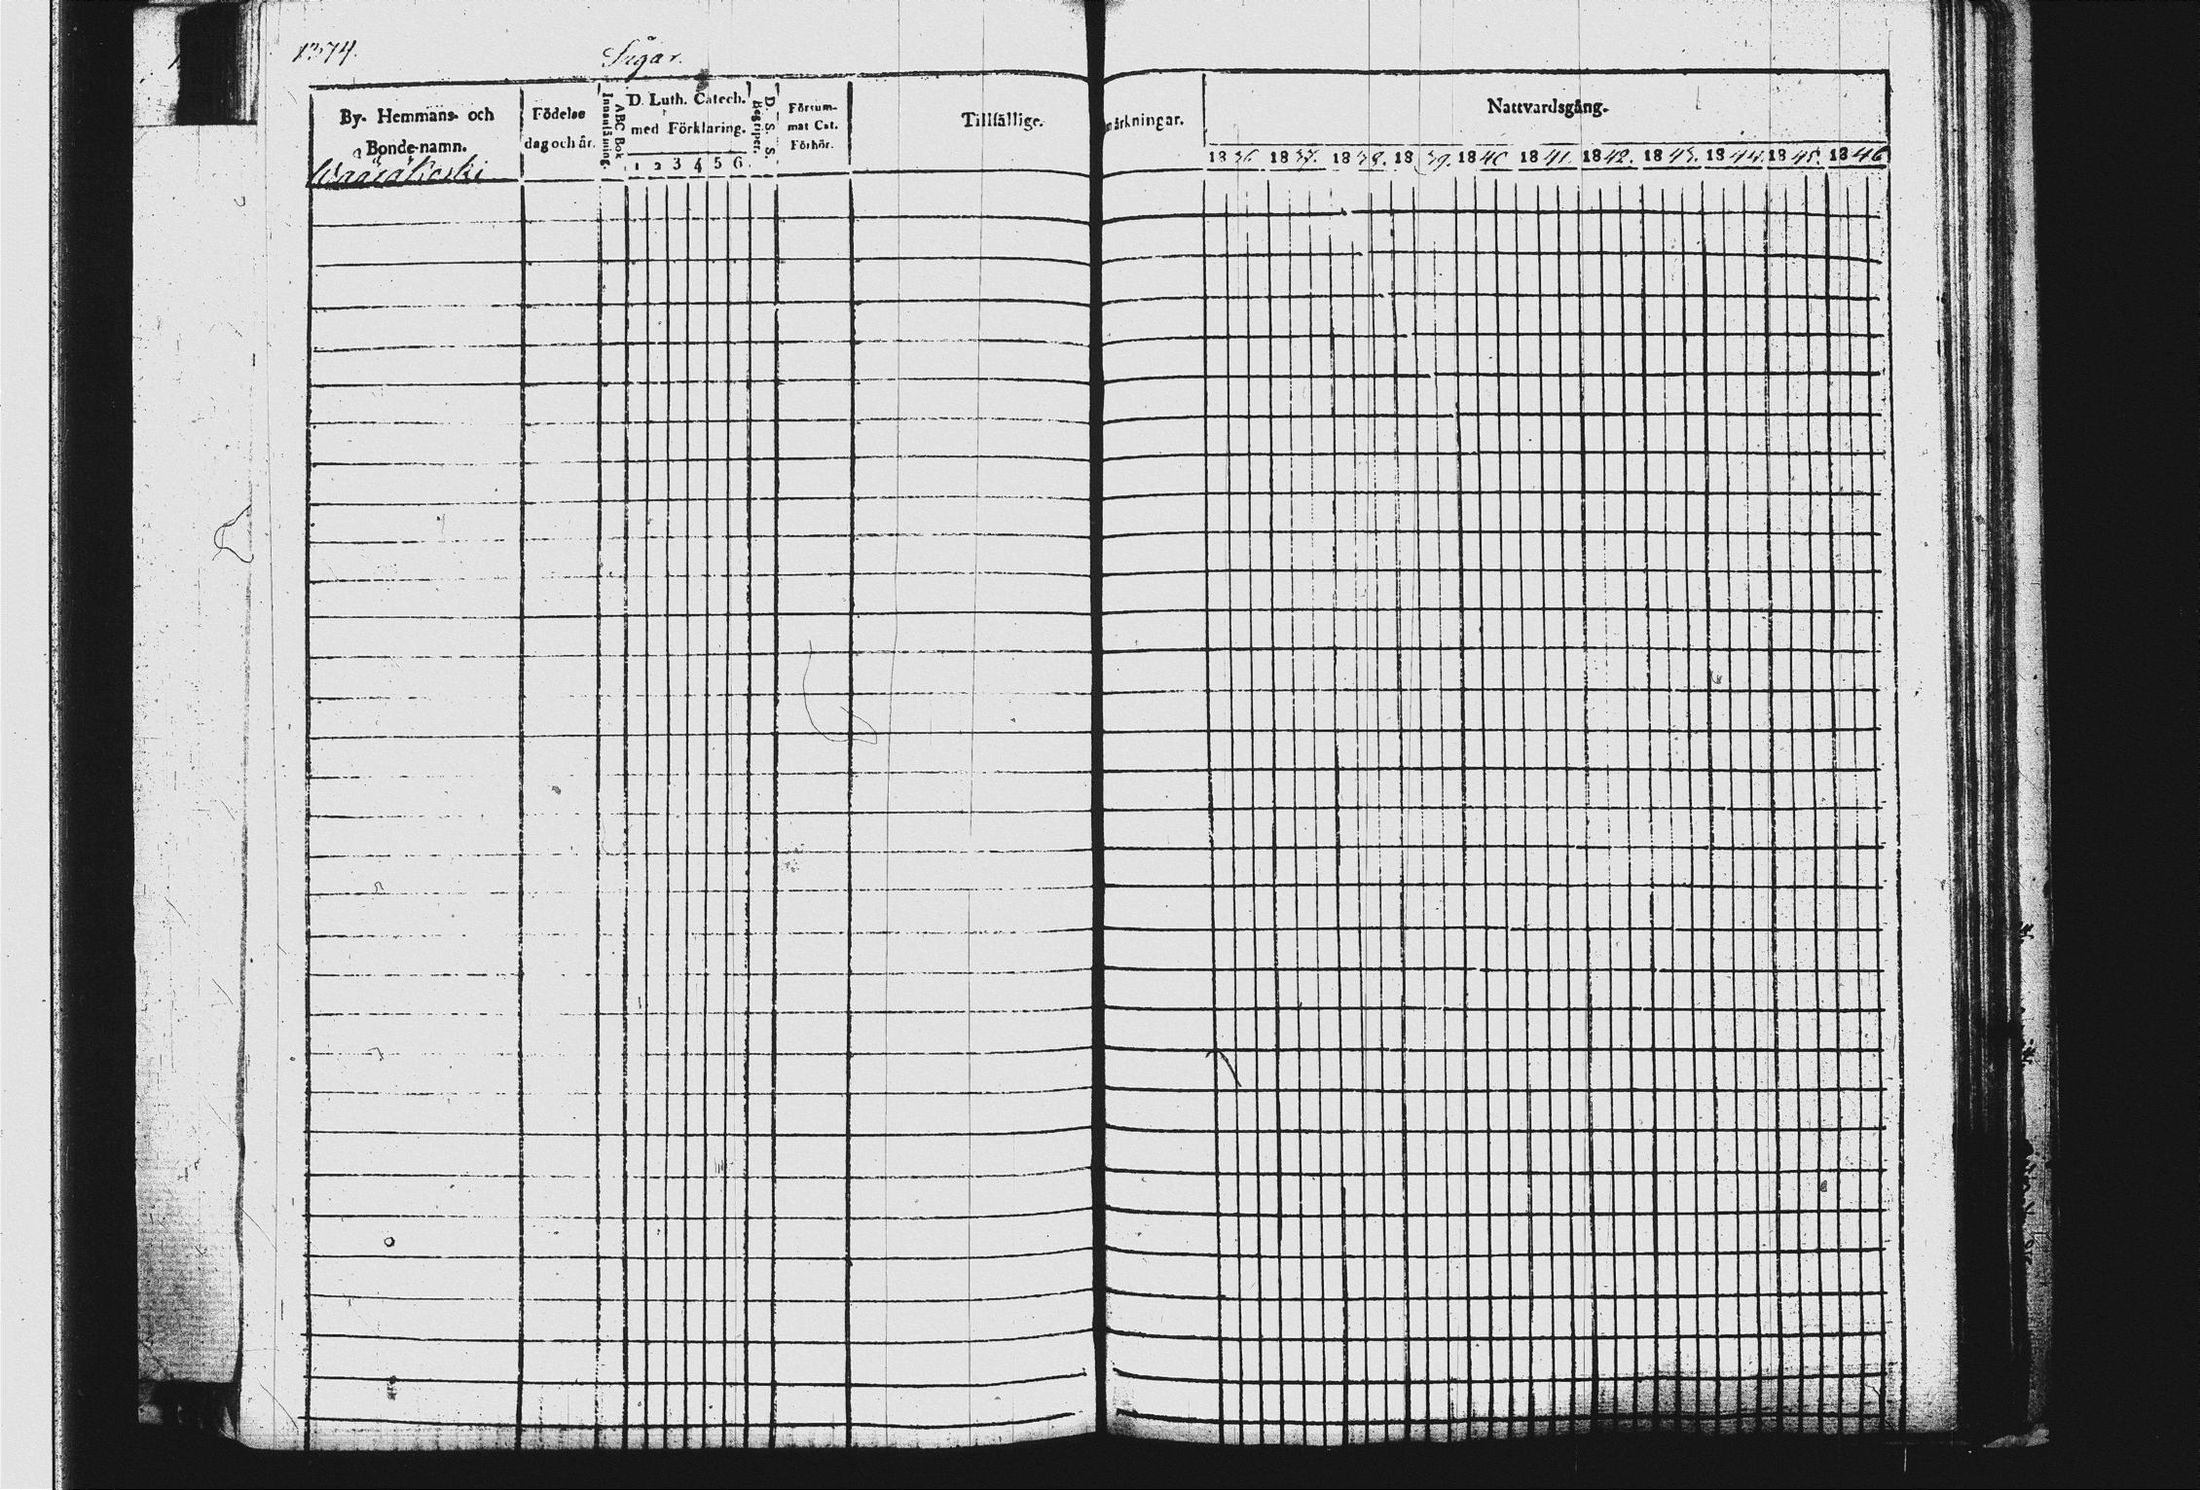 1374.
By- Hemmans- och
Bonde-namn.
Födelse
dag och år.
ABC Bok
Innanläsning.
D. Luth. Catech.
med Förklaring.
1 2 3 4 5 6
D. S. S.
Begriper.
Försum-
mat Cat.
Förhör.
Tillfällige.
märkningar.
Nattvardsgång.
1836. 1837. 1838. 1839. 1840 1841. 1842. 1843. 1844. 1845. 1846